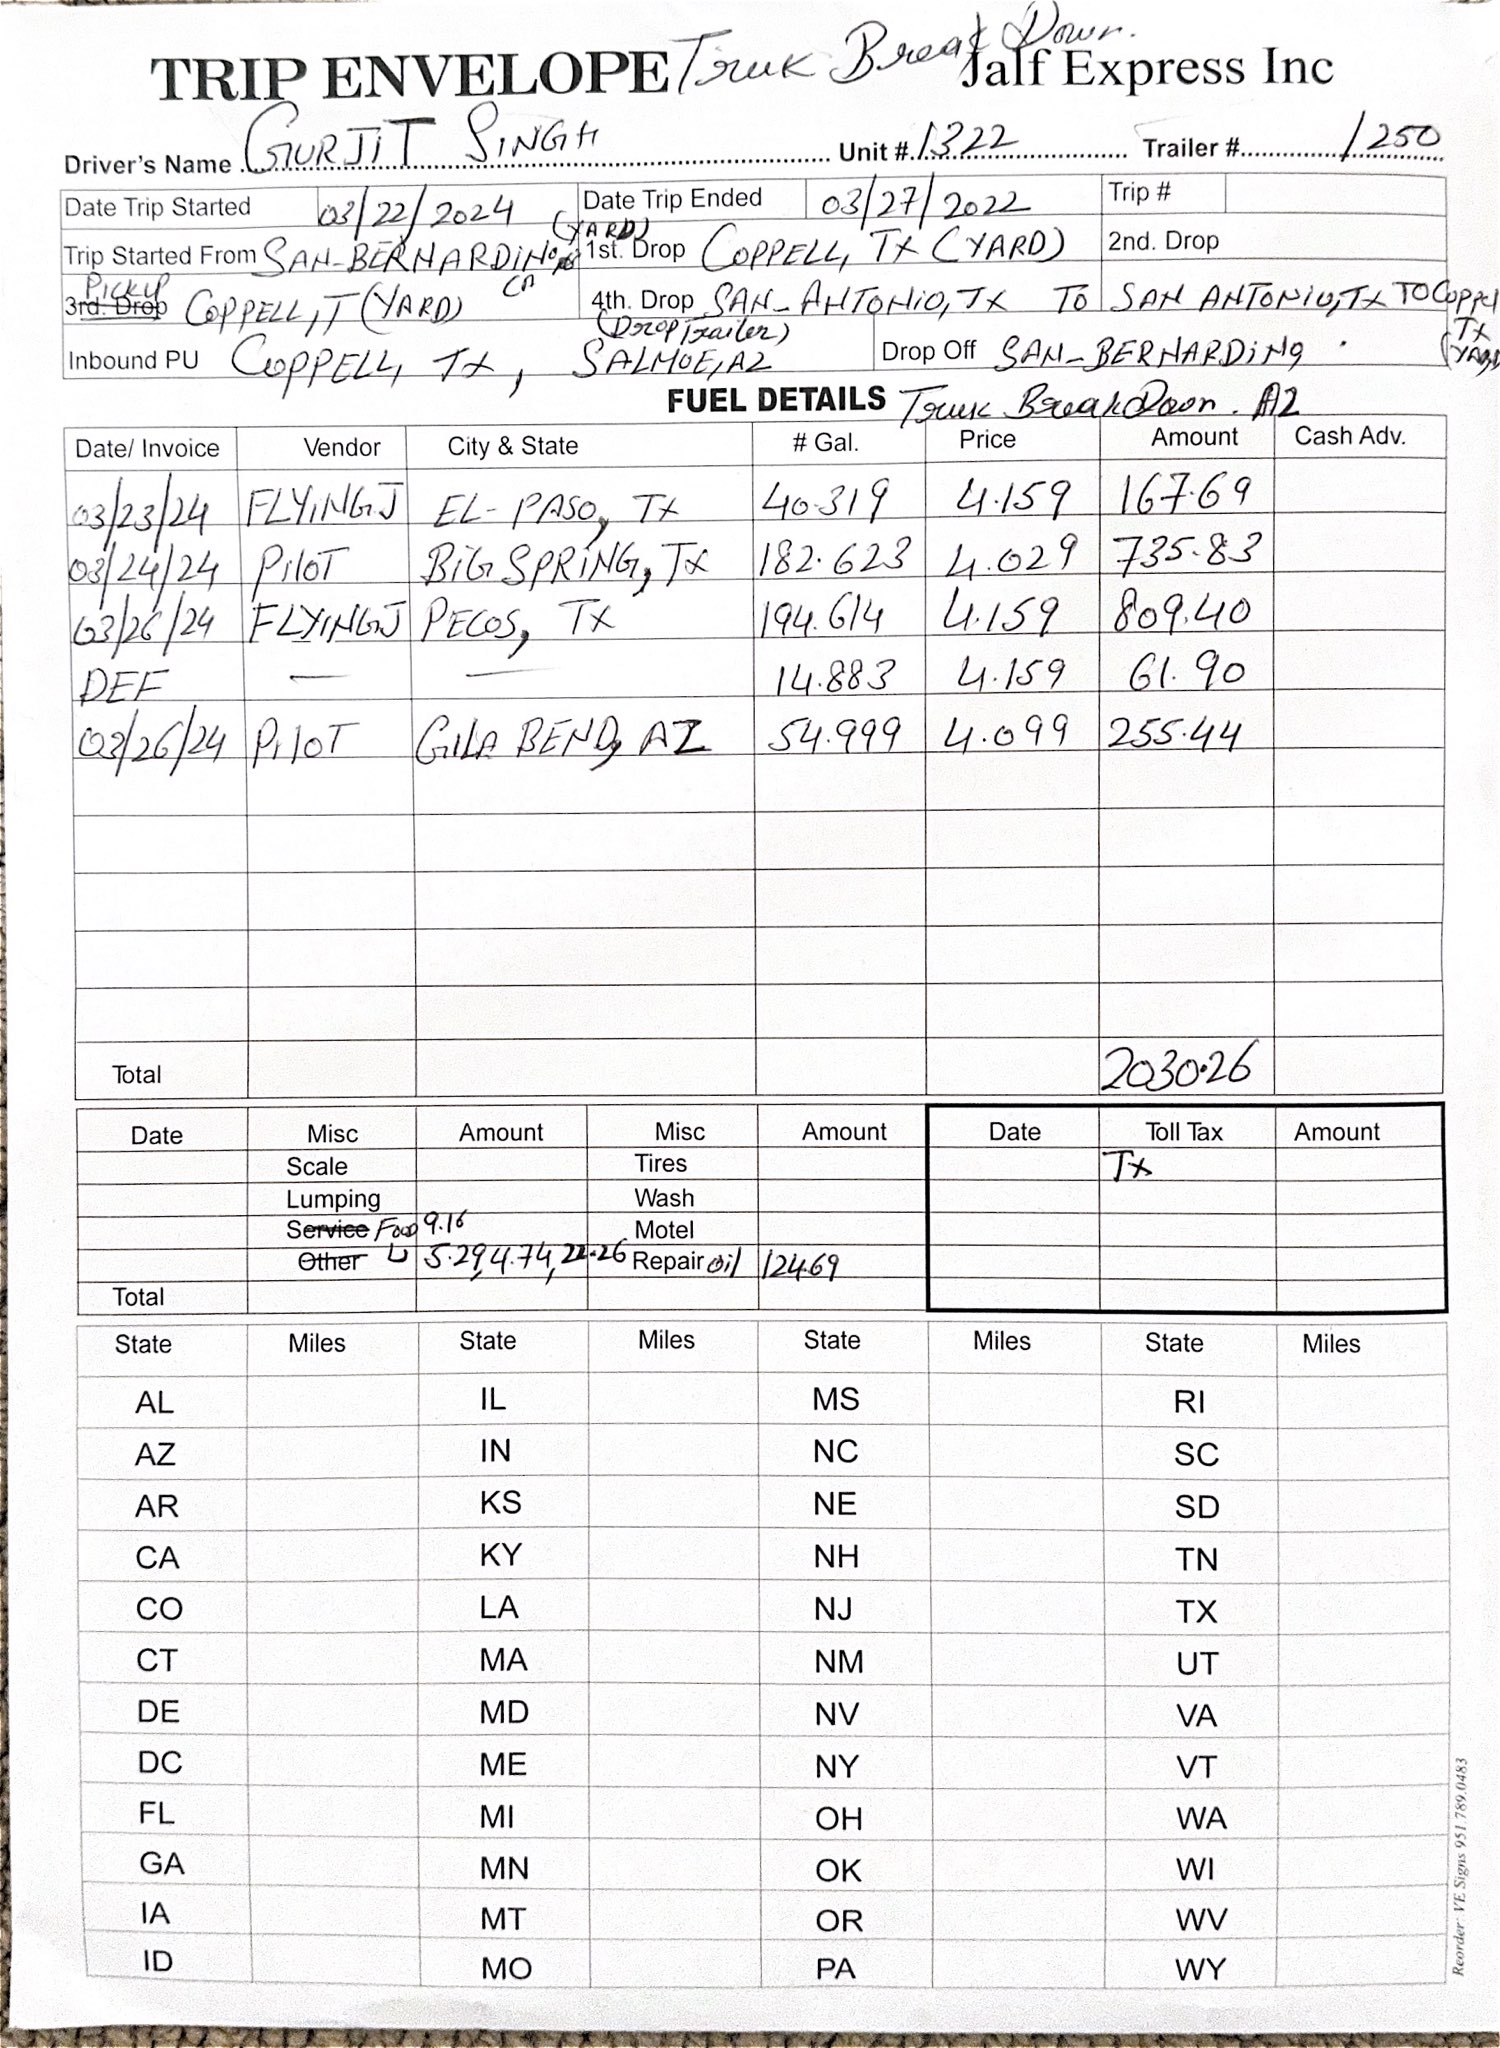 Truck Break Down.
TRIP ENVELOPE Jalf Express Inc
Driver's Name GURJIT SINGH Unit # 1322 Trailer # 1250
Date Trip Started 03/22/2024 Date Trip Ended 03/27/2022 Trip #
Trip Started From SAN-BERNARDINO CA (YARD) 1st. Drop COPPELL, TX (YARD) 2nd. Drop
3rd. Drop PICKUP COPPELL, T (YARD) 4th. Drop SAN-ANTONIO, TX TO SAN ANTONIO, TX TO Coppel TX (YARD)
(Drop Trailer)
Inbound PU COPPELL, TX, SALMOE, AZ Drop Off SAN-BERNARDING
FUEL DETAILS Truck BreakDown. AZ
Date/ Invoice Vendor City & State # Gal. Price Amount Cash Adv.
03/23/24 FLYINGJ EL-PASO, TX 40.319 4.159 167.69
03/24/24 PILOT BIG SPRING, TX 182.623 4.029 735.83
03/26/24 FLYINGJ PECOS, TX 194.614 4.159 809.40
DEF — — 14.883 4.159 61.90
03/26/24 PILOT GILA BEND, AZ 54.999 4.099 255.44
Total 2030.26
Date Misc Amount Misc Amount Date Toll Tax Amount
Scale Tires TX
Lumping Wash
Service Food 9.16 Motel
Other 5.29, 4.74, 22.26 Repair oil 124.69
Total
State Miles State Miles State Miles State Miles
AL IL MS RI
AZ IN NC SC
AR KS NE SD
CA KY NH TN
CO LA NJ TX
CT MA NM UT
DE MD NV VA
DC ME NY VT
FL MI OH WA
GA MN OK WI
IA MT OR WV
ID MO PA WY
Reorder: VE Signs 951.789.0483